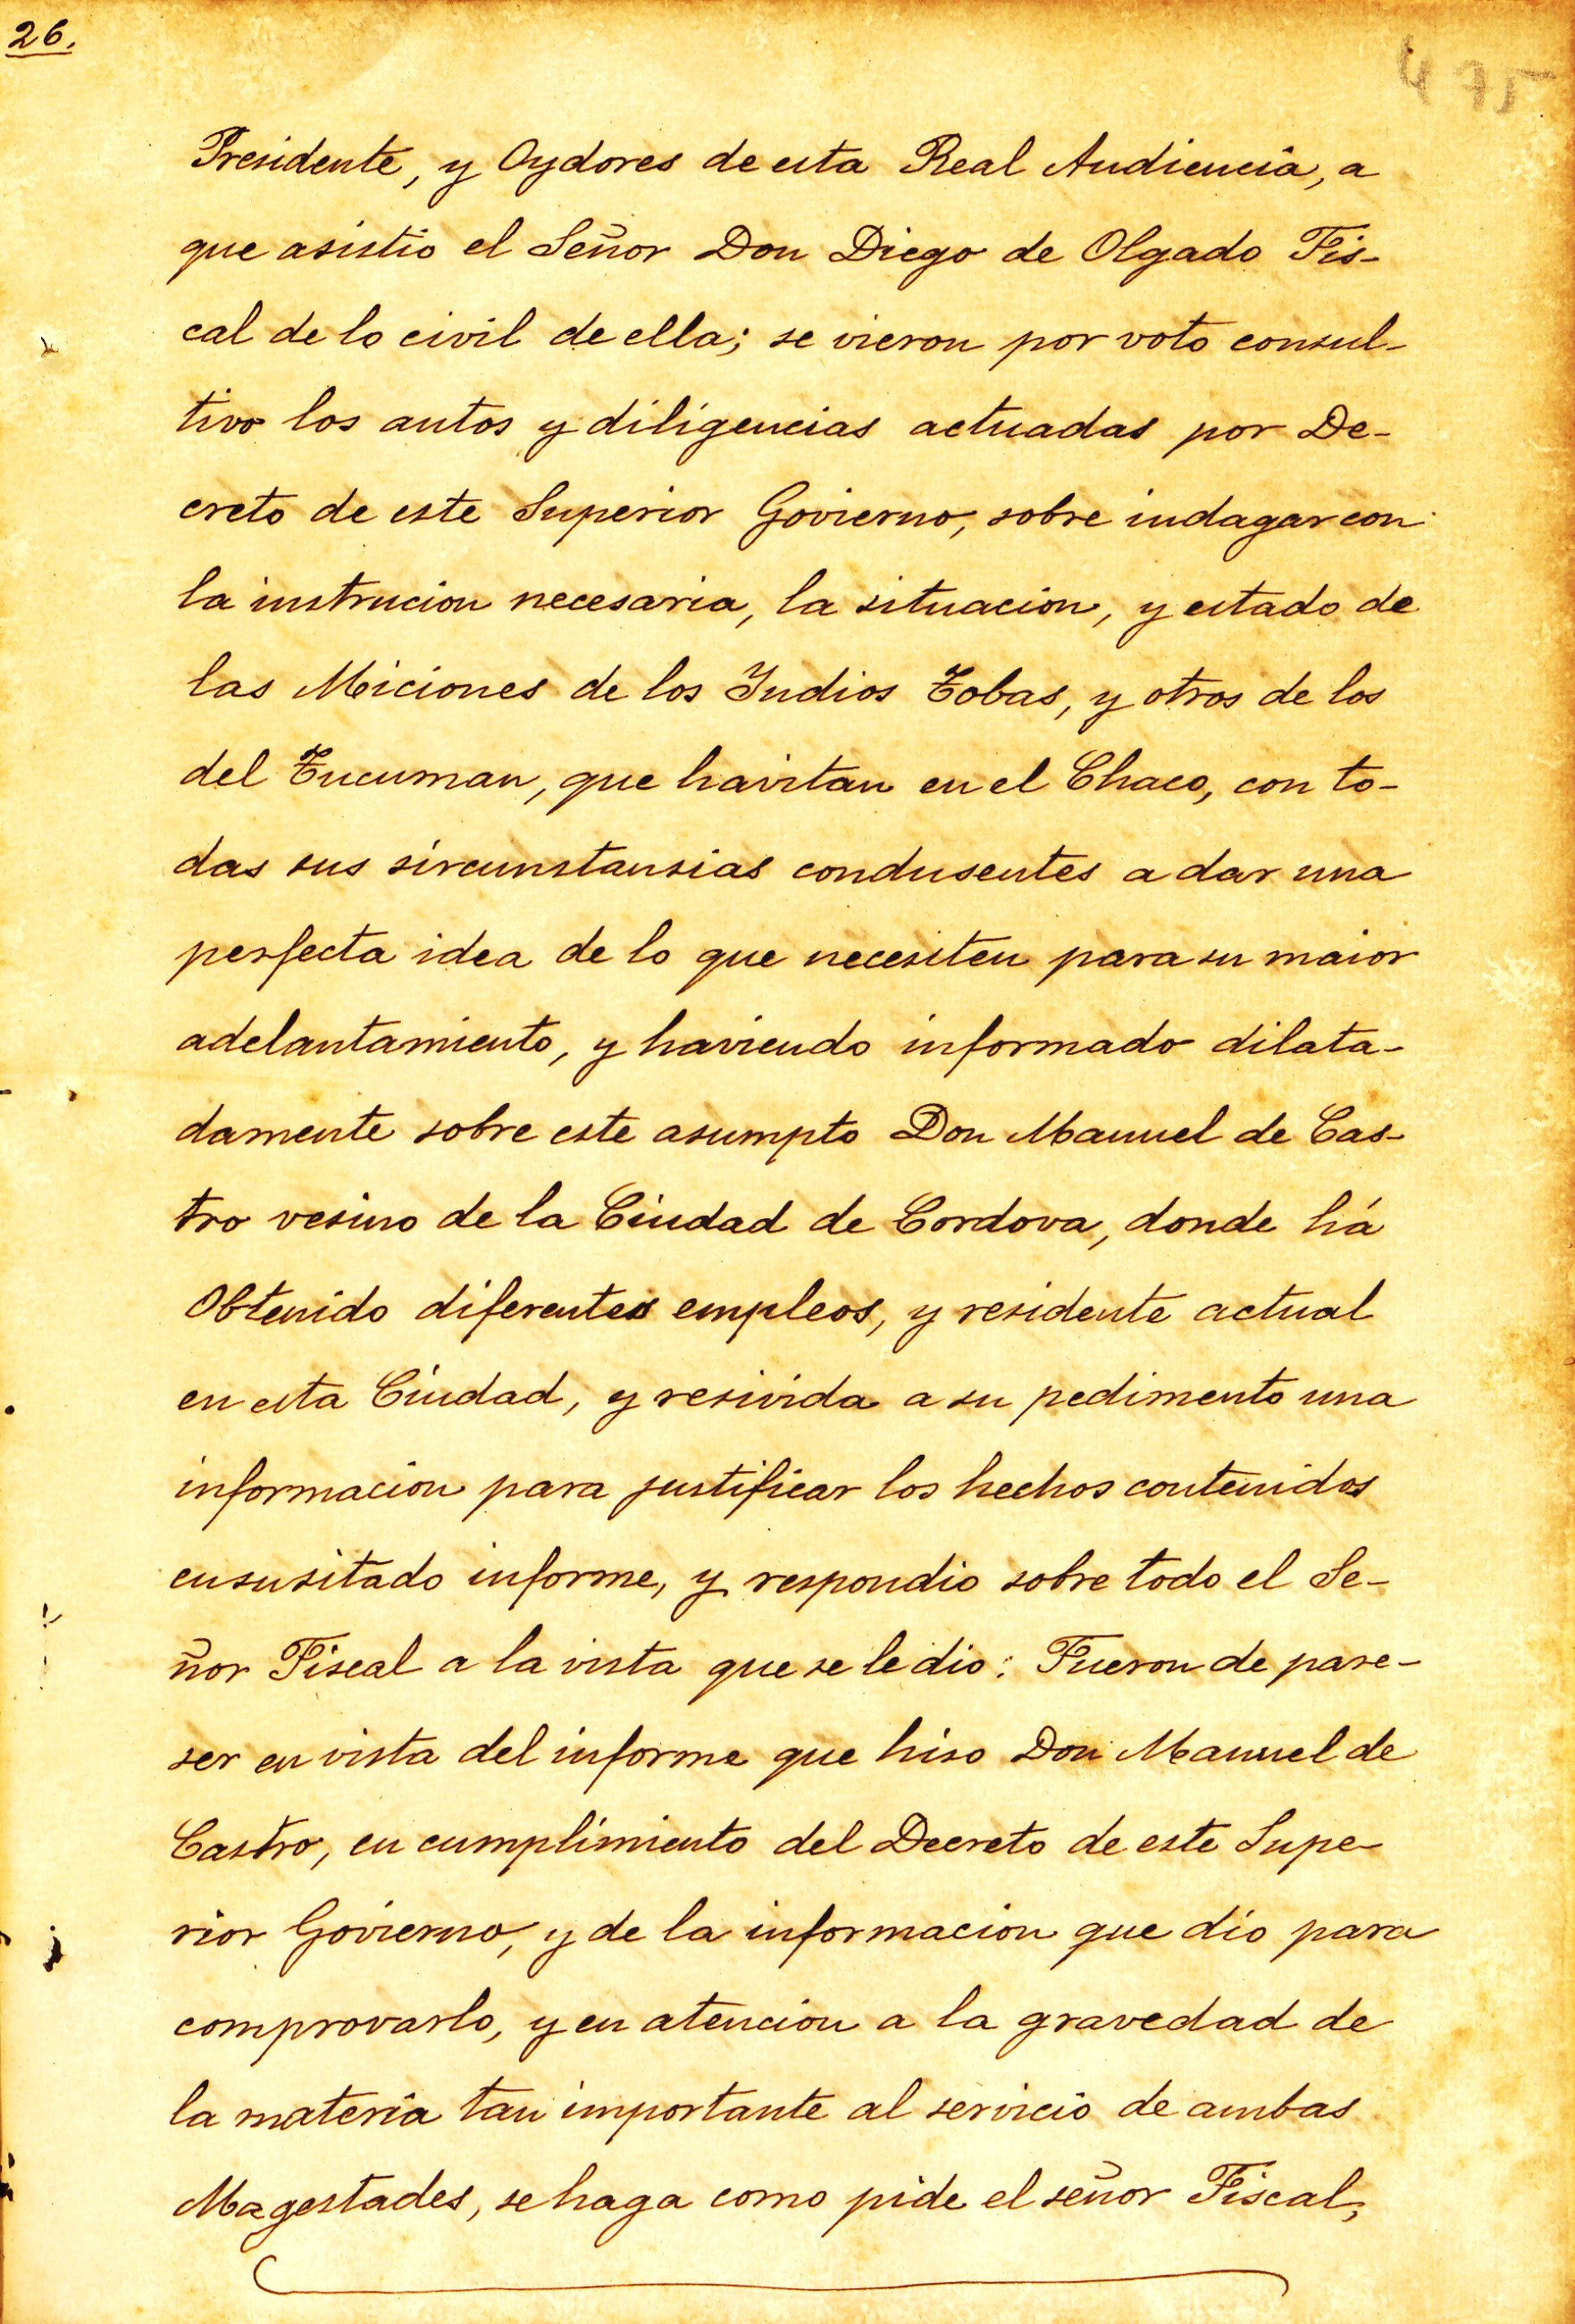 26.
475
Presidente, y Oydores de esta Real Audiencia, a
que asistio el Señor Don Diego de Olgado Fis-
cal de lo civil de ella; se vieron por voto consul-
tivo los autos y diligencias actuadas por De-
creto de este Superior Govierno, sobre indagar con
la instrucion necesaria, la situacion, y estado de
las Miciones de los Indios Tobas, y otros de los
del Tucuman, que havitan en el Chaco, con to-
das sus sircunstansias condusentes a dar una
perfecta idea de lo que necesiten para su maior
adelantamiento, y haviendo informado dilata-
damente sobre este asumpto Don Manuel de Cas-
tro vesino de la Ciudad de Cordova, donde há
Obtenido diferentes empleos, y residente actual
en esta Ciudad, y resivida a su pedimento una
informacion para justificar los hechos contenidos
en su sitado informe, y respondio sobre todo el Se-
ñor Fiscal a la vista que se le dio: Fueron de pare-
ser en vista del informe que hiso Don Manuel de
Castro, en cumplimiento del Decreto de este Supe-
rior Govierno, y de la informacion que dio para
comprovarlo, y en atencion a la gravedad de
la materia tan importante al servicio de ambas
Magestades, se haga como pide el señor Fiscal,